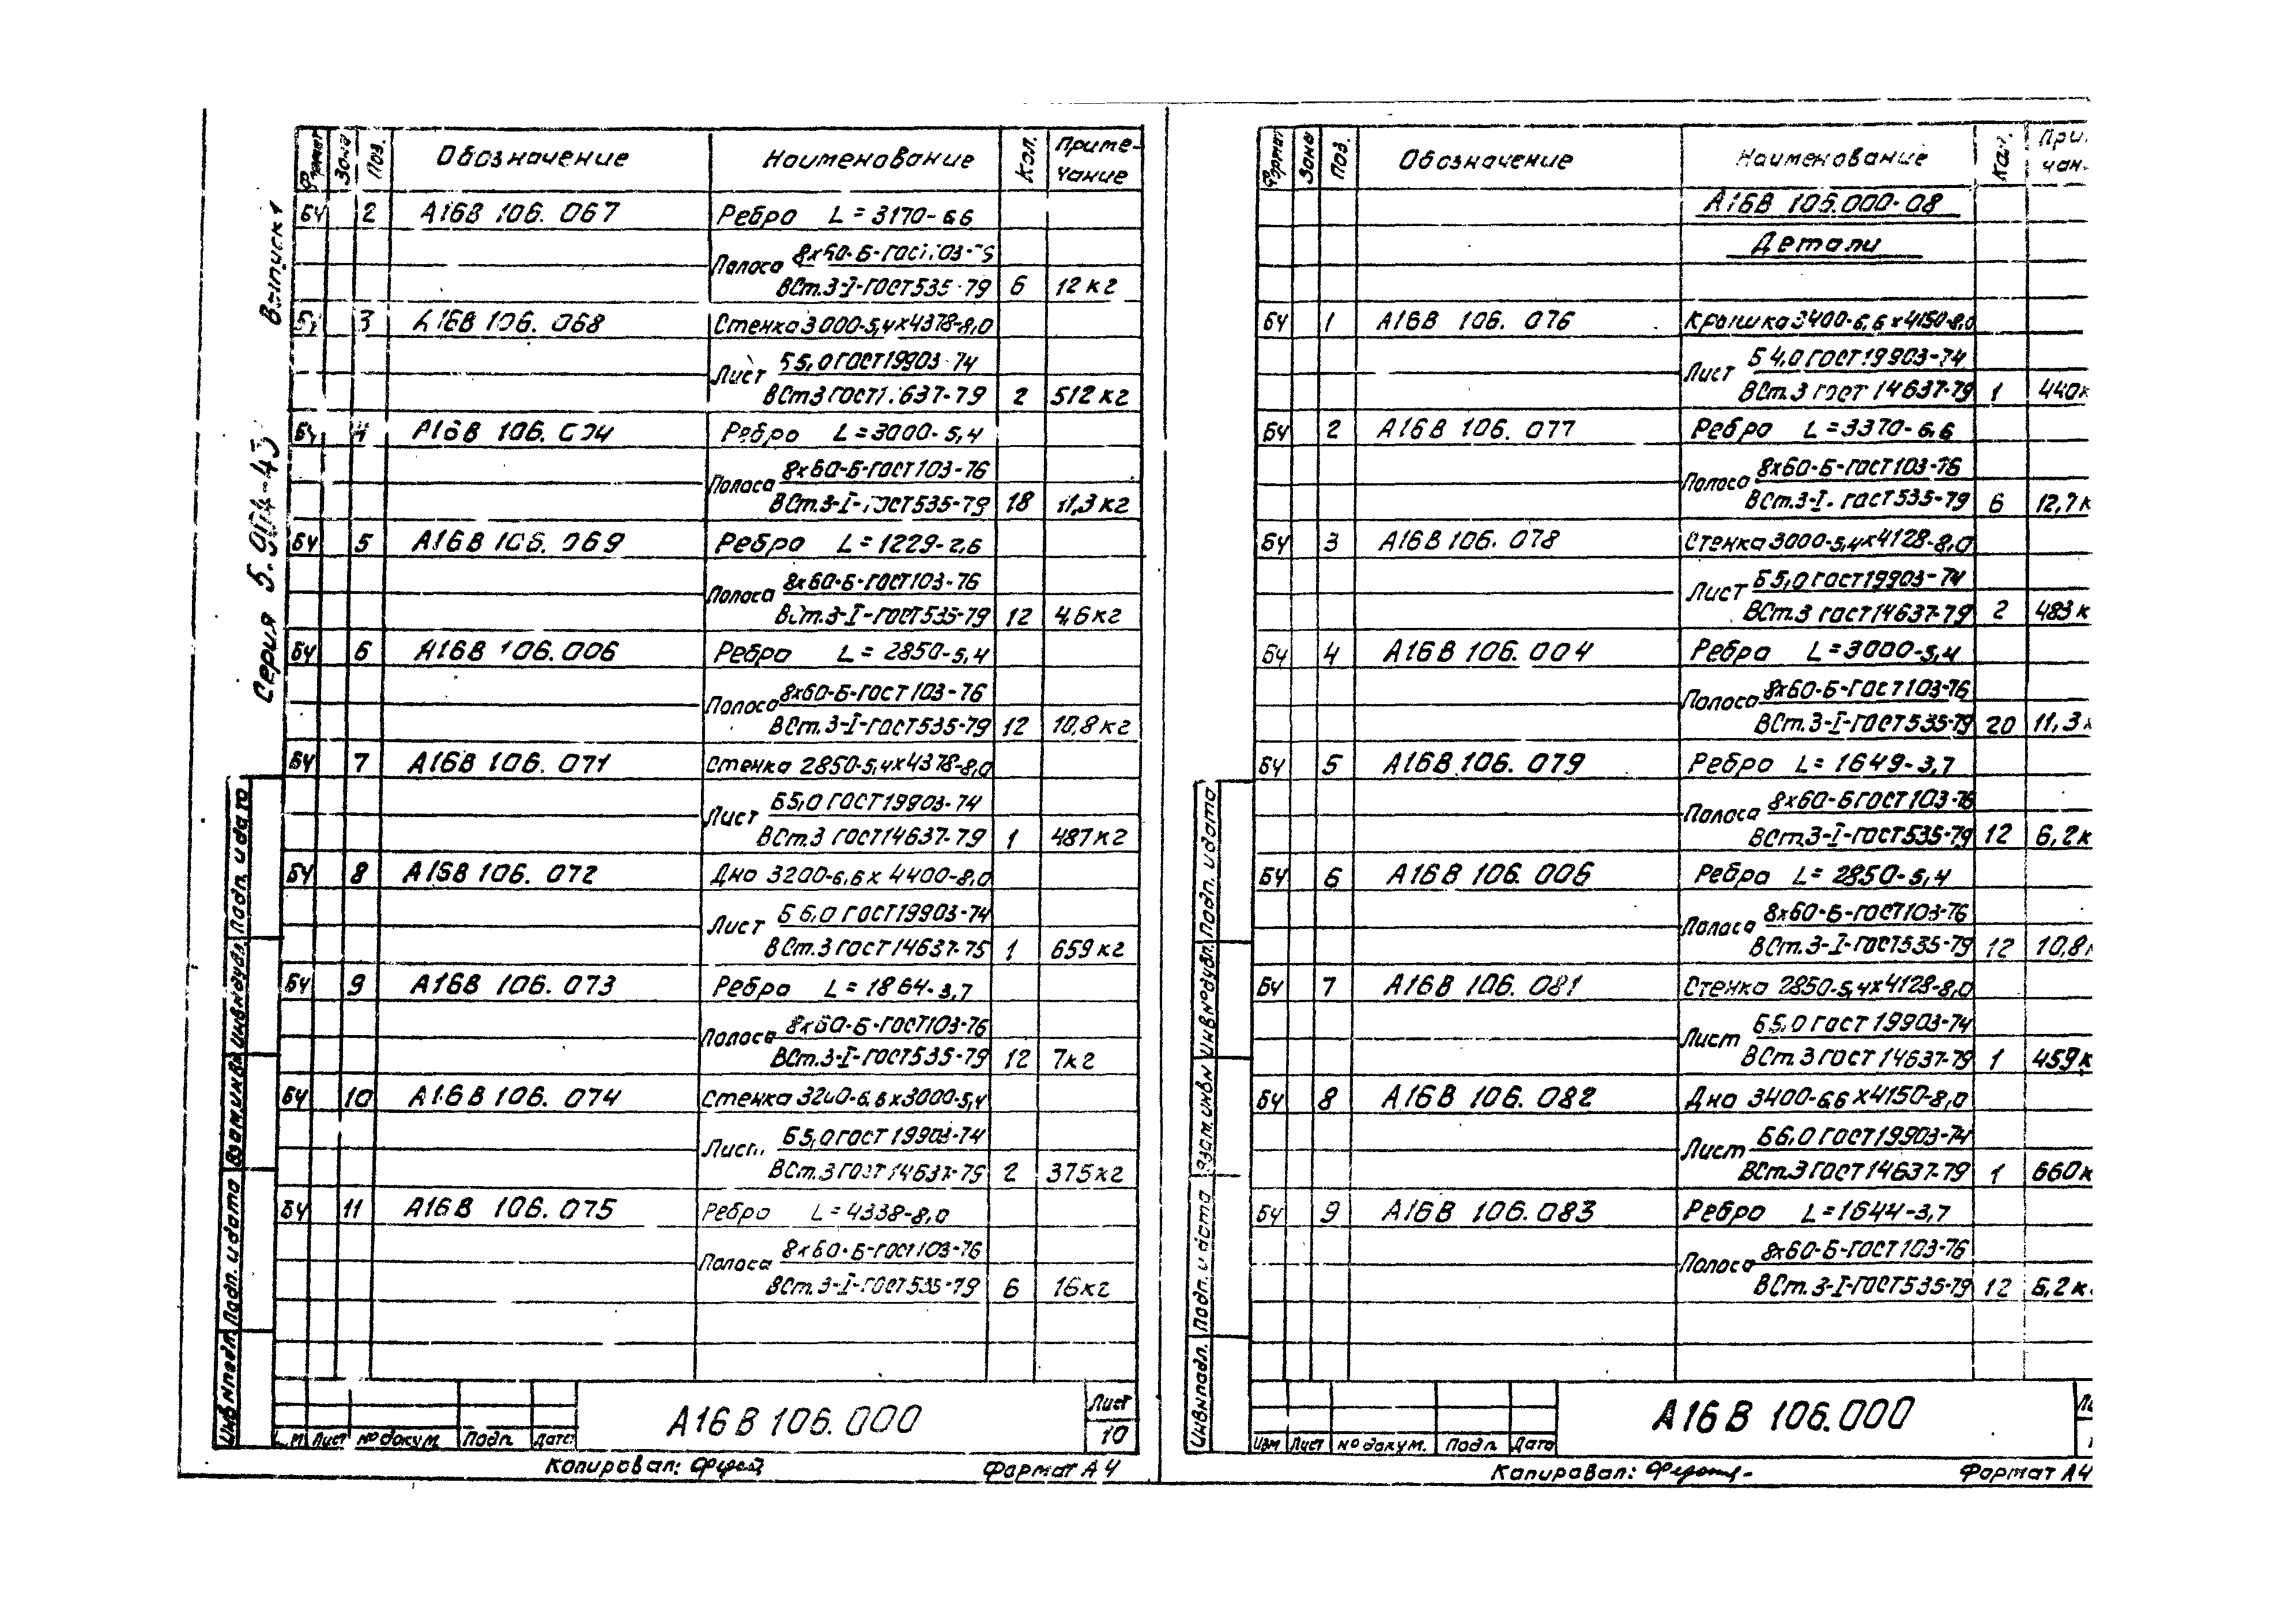 Серия 5.904-43 Выпуск 1
Формат Зона Поз. Обозначение Наименование Кол. Приме-
чание
БЧ 2 А16В 106. 067 Ребро L = 3170-6,6
Полоса 8х60-Б-ГОСТ103-76
ВСт.3-I-ГОСТ535-79 6 12 кг
БЧ 3 А16В 106. 068 Стенка 3000-5,4х4378-8,0
Лист Б5,0 ГОСТ19903-74
ВСт3 ГОСТ14637-79 2 512 кг
БЧ 4 А16В 106. 004 Ребро L=3000-5,4
Полоса 8х60-Б-ГОСТ103-76
ВСт.3-I-ГОСТ535-79 18 11,3 кг
БЧ 5 А16В 106. 069 Ребро L=1229-2,6
Полоса 8х60-Б-ГОСТ103-76
ВСт.3-I-ГОСТ535-79 12 4,6 кг
БЧ 6 А16В 106.006 Ребро L= 2850-5,4
Полоса 8х60-Б-ГОСТ103-76
ВСт.3-I-ГОСТ535-79 12 10,8 кг
БЧ 7 А16В 106. 071 Стенка 2850-5,4х4378-8,0
Лист Б5,0 ГОСТ19903-74
ВСт.3 ГОСТ14637-79 1 487 кг
БЧ 8 А16В 106. 072 Дно 3200-6,6х 4400-8,0
Лист Б 6,0 ГОСТ19903-74
ВСт.3 ГОСТ14637-75 1 659 кг
БЧ 9 А16В 106. 073 Ребро L= 1864-3,7
Полоса 8х60-Б-ГОСТ103-76
ВСт.3-I-ГОСТ535-79 12 7кг
БЧ 10 А16В 106. 074 Стенка 3200-6,6х3000-5,4
Лист Б5,0 ГОСТ 19903-74
ВСт.3 ГОСТ 14637-79 2 375 кг
БЧ 11 А16В 106. 075 Ребро L=4338-8,0
Полоса 8х60-Б-ГОСТ103-76
ВСт.3-I-ГОСТ535-79 6 16 кг
Инв №подл. Подп. и дата Взам.инв№ Инв№дубл. Подп. и дата
А16В 106.000 Лист
10
Лист № докум. Подп. Дата
Копировал: Формат А4
Формат Зона Поз. Обозначение Наименование Кол. При
чан
А16В 106.000-08
Детали
БЧ 1 А16В 106. 076 Крышка 3400-6,6х4150-8,0
Лист Б 4,0 ГОСТ19903-74
ВСт.3 ГОСТ 14637-79 1 440к
БЧ 2 А16В 106. 077 Ребро L=3370-6,6
Полоса 8х60-Б-ГОСТ103-76
ВСт.3-I. ГОСТ535-79 6 12,7 к
БЧ 3 А16В 106. 078 Стенка 3000-5,4х4128-8,0
Лист Б5,0 ГОСТ19903-74
ВСт.3 ГОСТ14637-79 2 483 к
БЧ 4 А16В 106. 004 Ребро L=3000-5,4
Полоса 8х60-Б-ГОСТ103-76
ВСт.3-I-ГОСТ535-79 20 11,3 к
БЧ 5 А16В 106. 079 Ребро L= 1649-3,7
Полоса 8х60-Б ГОСТ103-76
ВСт.3-I-ГОСТ535-79 12 6,2 к
БЧ 6 А16В 106. 006 Ребро L= 2850-5,4
Полоса 8х60-Б-ГОСТ103-76
ВСт.3-I-ГОСТ535-79 12 10,8
БЧ 7 А16В 106. 081 Стенка 2850-5,4х4128-8,0
Лист Б5,0 ГОСТ 19903-74
ВСт.3 ГОСТ 14637-79 1 459 к
БЧ 8 А16В 106. 082 Дно 3400-6,6х4150-8,0
Лист Б6,0 ГОСТ19903-74
ВСт.3 ГОСТ14637-79 1 660к
БЧ 9 А16В 106. 083 Ребро L=1644-3,7
Полоса 8х60-Б-ГОСТ103-76
ВСт.3-I-ГОСТ535-79 12 6,2 к
Инв№подл. Подп. и дата Взам.инв№ Инв№дубл. Подп. и дата
А16В 106.000
Изм Лист № докум. Подп. Дата
Копировал: Формат А4